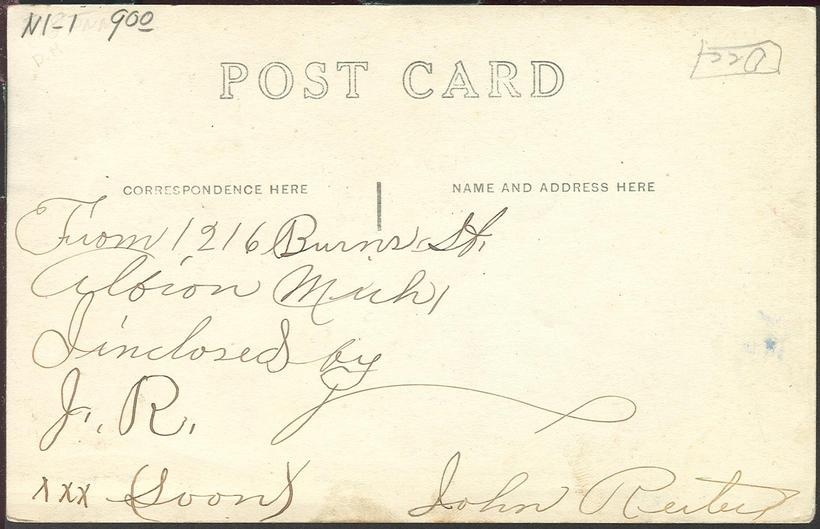 N1-1 900
POST CARD
CORRESPONDENCE HERE
NAME AND ADDRESS HERE
From 1216 Burns St.
Albion Mich,
Inclosed by
J. R.
xxx (Soon)
John